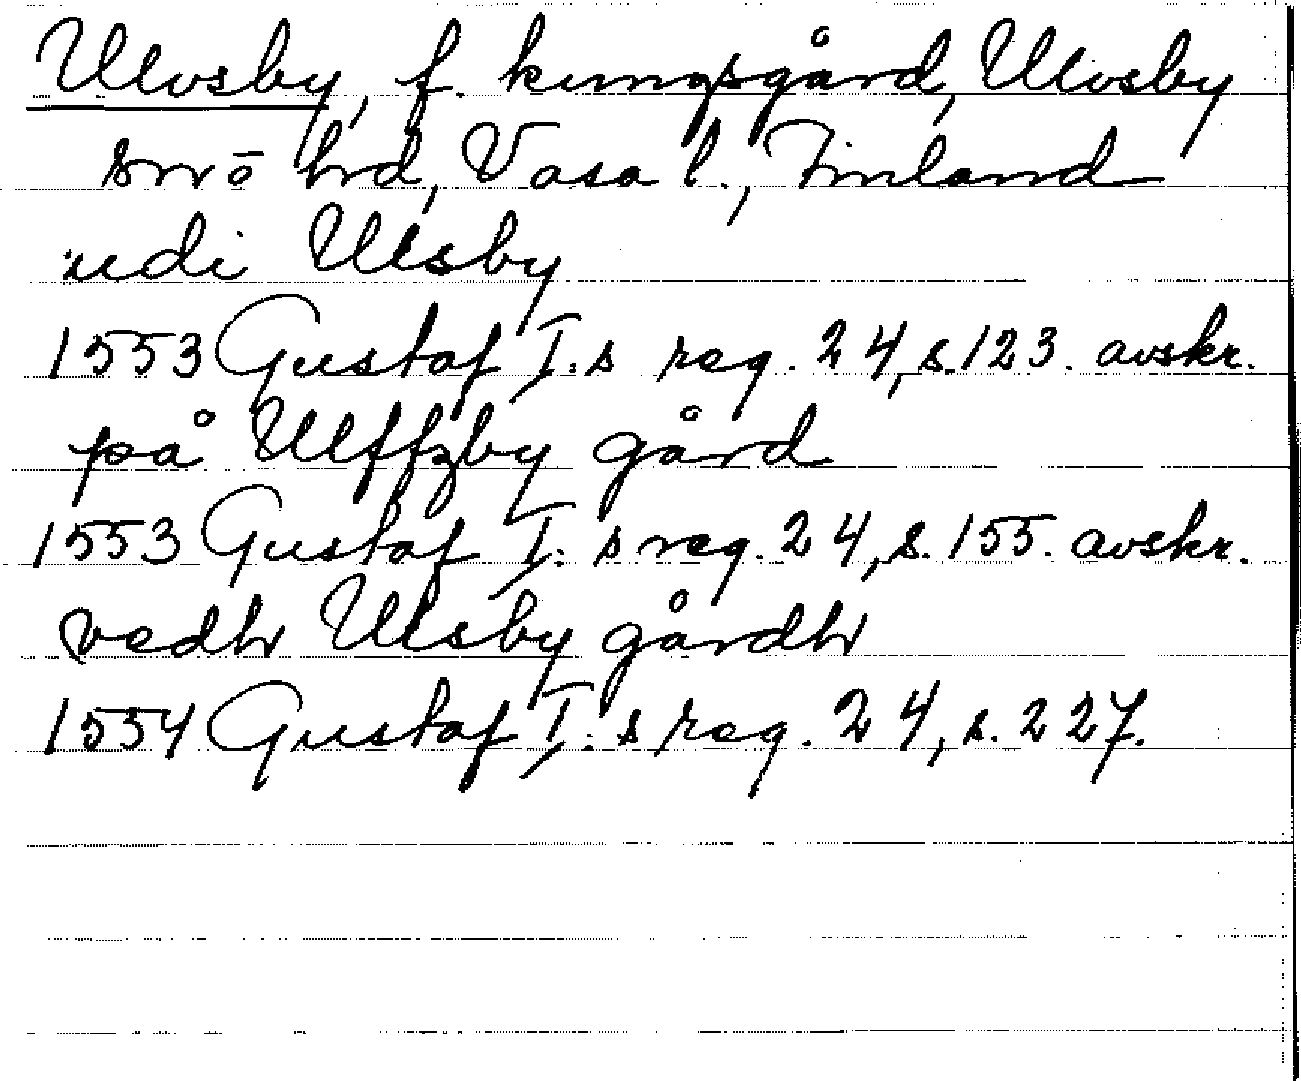 Ulvsby, f. kungsgård, Ulvsby
sn o hd, Vasa l., Finland
udi Ulsby
1553 Gustaf I:s reg. 24, s. 123. avskr.
på Ulffzby gård
1553 Gustaf I:s reg. 24, s. 155. avskr.
vedh Ulsby gårdh
1554 Gustaf I:s reg. 24, s. 227.